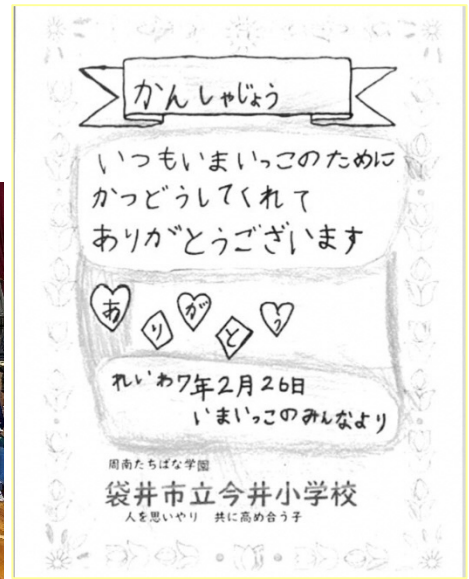 かんしゃじょう
いつもいまいっこのために
かつどうしてくれて
ありがとうございます
ありがとう
れいわ7年2月26日
いまいっこのみんなより
周南たちばな学園
袋井市立今井小学校
人を思いやり 共に高め合う子